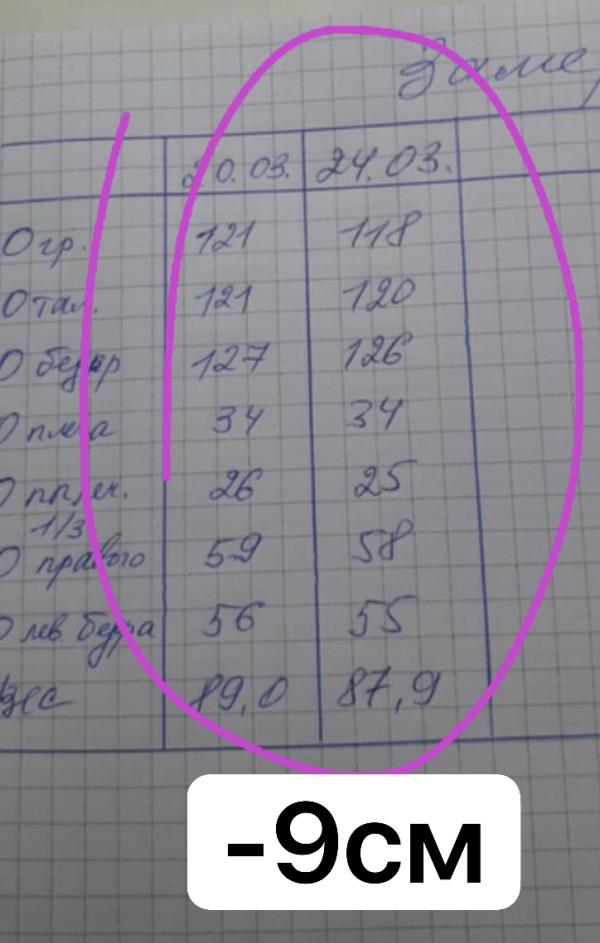 Заме
20.03. 24.03.
О гр. 121 118
О тал. 121 120
О бедер 127 126
О плеча 34 34
О пплеч. 26 25
1/3
О правого 59 58
О лев. бедра 56 55
Вес 89,0 87,9
-9см